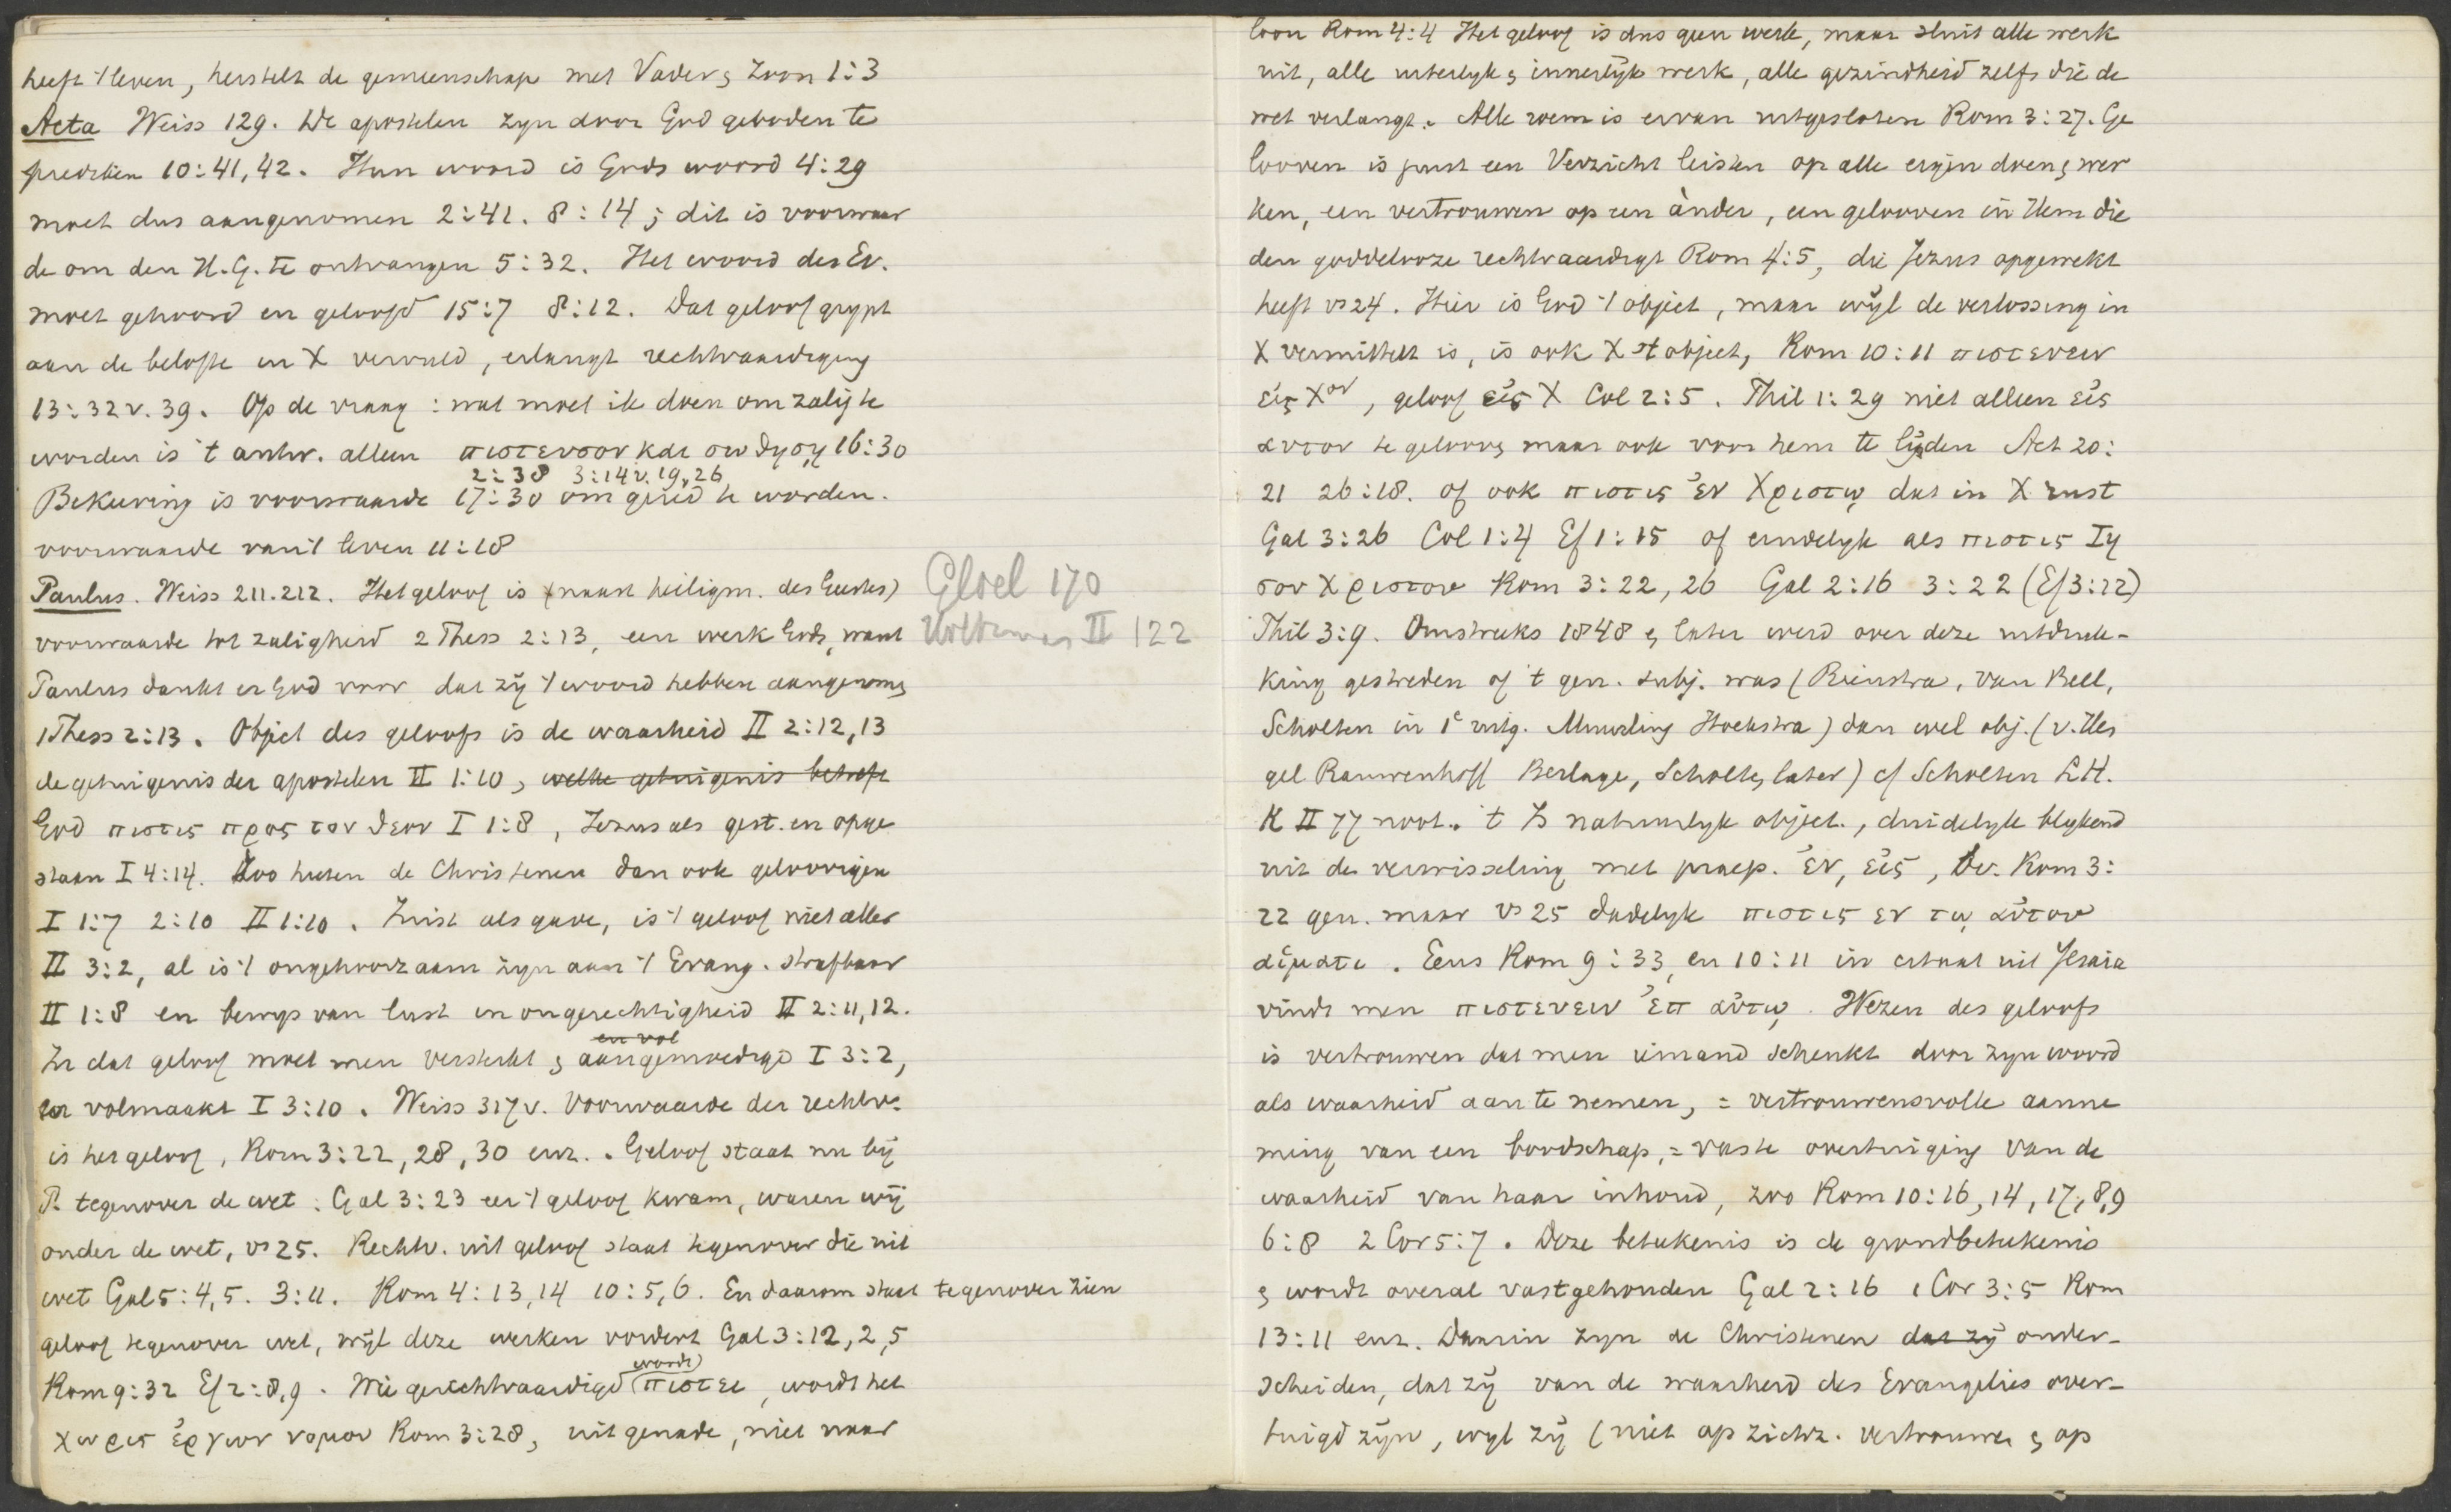 heeft 't leven, herstelt de gemeenschap met Vader & Zoon 1:3
Acta Weiss 129. De apostelen zyn door God geboden te
prediken 10:41,42. Hun woord is Gods woord 4:29
moet dus aangenomen 2:41. 8:14; dit is voorwaar
de om den H.G. te ontvangen 5:32. Het woord des Ev.
moet gehoord en geloofd 15:7 8:12. Dat geloof grypt
aan de belofte in X vervuld, erlangt rechtvaardiging
13:32v. 39. Op de vraag: wat moet ik doen om zalig te
worden is 't antw. alleen πιστευσον και σωθηση 16:30
2:38 3:14v. 19,26
Bekeering is voorwaarde 17:30 om gered te worden.
voorwaarde van 't leven 11:18
Paulus. Weiss 211.212. Het geloof is (naast heiligm. des Geestes)
Gloel 170
voorwaarde tot zaligheid 2 Thess 2:13, een werk Gods, want
II 122
Paulus dankt er God voor dat zij 't woord hebben aangenomen
1 Thess 2:13. Object des geloofs is de waarheid II 2:12,13
de getuigenis der apostelen II 1:10, welke getuigenis betreft
God πιστις προς τον θεον I 1:8, Jezus als gest. en opge
staan I 4:14. Zoo heeten de Christenen dan ook geloovigen
I 1:7 2:10 II 1:10. Juist als gave, is 't geloof niet aller
II 3:2, al is 't ongehoorzaam zyn aan 't Evang. strafbaar
II 1:8 en bewys van lust in ongerechtigheid II 2:11,12.
en vol
In dat geloof moet men versterkt & aangemoedigd I 3:2,
en volmaakt I 3:10. Weiss 317v. Voorwaarde der rechtv.
is het geloof, Rom 3:22,28,30 enz. Geloof staat nu bij
P. tegenover de wet: Gal 3:23 eer 't geloof kwam, waren wij
onder de wet, vs 25. Rechtv. uit geloof staat tegenover die uit
wet Gal 5:4,5. 3:11. Rom 4:13,14 10:5,6. En daarom staat tegenover zien
geloof tegenover wet, wijl deze werken vordert Gal 3:12,2,5
wordt)
Rom 9:32 Ef 2:8,9. Wie gerechtvaardigd (πιστει, wordt het
χωρις ἐργων νομου Rom 3:28, uit genade, niet naar
loon Rom 4:4 Het geloof is dus geen werk, maar sluit alle werk
uit, alle uiterlyk & innerlijk werk, alle gezindheid zelfs die de
wet verlangt. Alle roem is ervan uitgesloten Rom 3:27. Ge
looven is juist een Verzicht leisten op alle eigen doen & wer
ken, een vertrouwen op een ànder, een gelooven in Hem die
den goddelooze rechtvaardigt Rom 4:5, die Jezus opgewekt
heeft vs 24. Hier is God 't object, maar wijl de verlossing in
X vermittelt is, is ook X 't object, Rom 10:11 πιστευειν
εἰς Χον, geloof εἰς X Col 2:5. Phil 1:29 niet alleen εἰς
αυτον te gelooven maar ook voor hem te lijden Act 20:
21 26:18. of ook πιστις ἐν Χριστῳ dat in X rust
Gal 3:26 Col 1:4 Ef 1:15 of eindelyk als πιστις Ιη
σου Χριστου Rom 3:22,26 Gal 2:16 3:22 (Ef 3:12)
Phil 3:9. Omstreeks 1848 & later werd over deze uitdruk-
king gestreden of 't gen. subj. was (Rienstra, van Bell,
Scholten in 1e uitg. Muurling Hoekstra) dan wel obj. (v. Hen
gel Rauwenhoff Berlage, Scholten later) cf Scholten L.H.
K II 77 noot. 't Is natuurlyk object., duidelyk blykend
uit de verwisseling met praep. ἐν, εἰς, bv. Rom 3:
22 gen. maar vs 25 dadelyk πιστις εν τῳ αὐτου
αἱματι. Eens Rom 9:33, en 10:11 in citaat uit Jesaia
vindt men πιστευειν ἐπ αὐτῳ. Wezen des geloofs
is vertrouwen dat men iemand schenkt door zyn woord
als waarheid aan te nemen, = vertrouwensvolle aanne
ming van een boodschap, = vaste overtuiging van de
waarheid van haar inhoud, zoo Rom 10:16,14,17,8,9
6:8 2 Cor 5:7. Deze beteekenis is de grondbeteekenis
& wordt overal vastgehouden Gal 2:16 1 Cor 3:5 Rom
13:11 enz. Daarin zyn de Christenen dat zij onder-
scheiden, dat zij van de waarheid des Evangelies over-
tuigd zijn, wyl zij (niet op zichz. vertrouwen & op